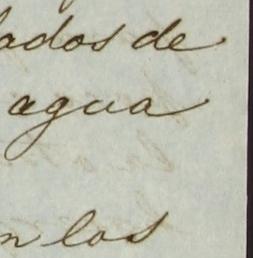 lados de
agua
n los